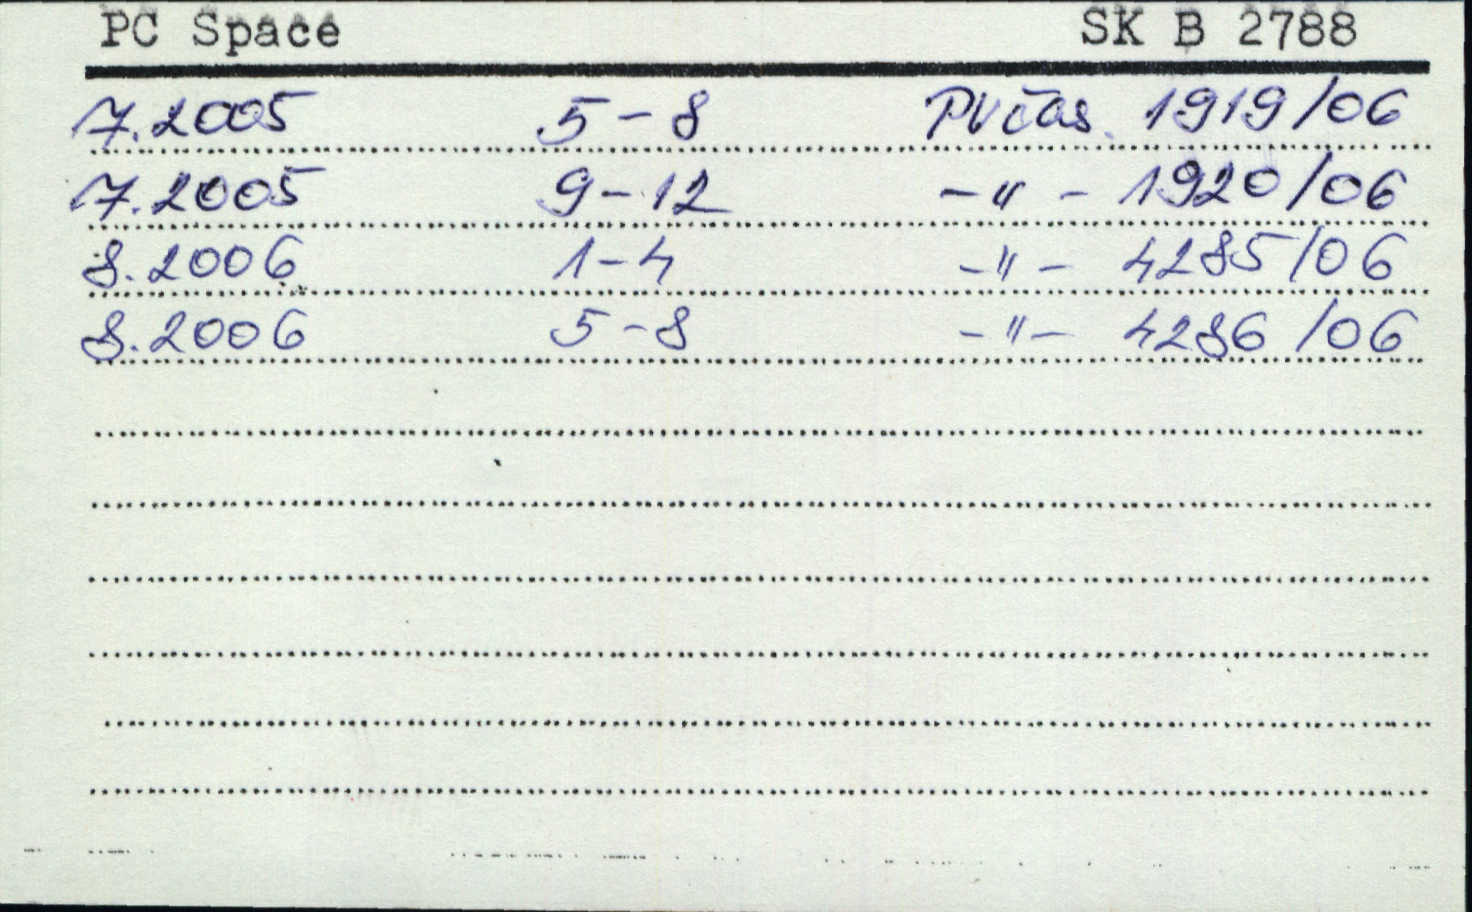 PC Space SK B 2788
7.2005 5-8 PVčas. 1919/06
7.2005 9-12 -"- 1920/06
8.2006 1-4 -"- 4285/06
8.2006 5-8 -"- 4286/06